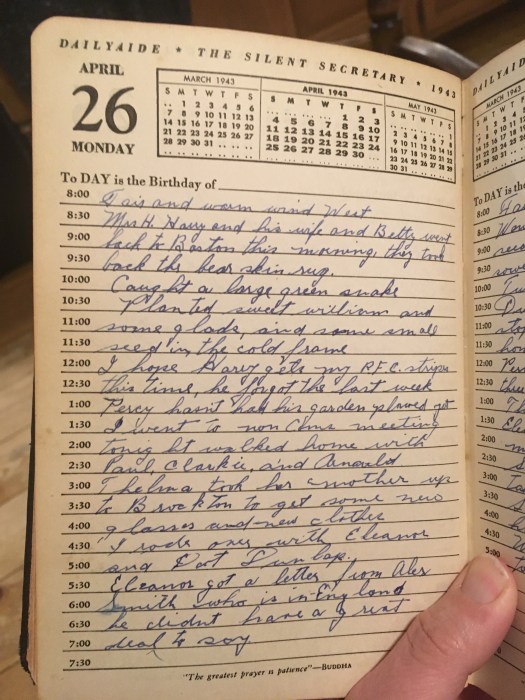 DAILYAIDE • THE SILENT SECRETARY • 1943
APRIL
26
MONDAY
MARCH 1943
S M T W T F S
.. 1 2 3 4 5 6
7 8 9 10 11 12 13
14 15 16 17 18 19 20
21 22 23 24 25 26 27
28 29 30 31 .. .. ..
APRIL 1943
S M T W T F S
.. .. .. .. 1 2 3
4 5 6 7 8 9 10
11 12 13 14 15 16 17
18 19 20 21 22 23 24
25 26 27 28 29 30 ..
MAY 1943
S M T W T F S
.. .. .. .. .. .. 1
2 3 4 5 6 7 8
9 10 11 12 13 14 15
16 17 18 19 20 21 22
23 24 25 26 27 28 29
30 31 .. .. .. .. ..
To DAY is the Birthday of
8:00 Fair and warm wind West
8:30 Mrs H. Harry and his wife and Betty went
9:00 back to Boston this morning, they took
9:30 back the bear skin rug.
10:00 Caught a large green snake
10:30 Planted sweet william and
11:00 some glads, and some small
11:30 seed in the cold frame
12:00 I hope Harry gets my P.F.C. stripes
12:30 this time, he forgot the last week
1:00 Percy hasn't had his garden plowed yet
1:30 I went to non Coms meeting
2:00 tonight walked home with
2:30 Paul, Clarkie, and
3:00 Thelma took her mother up
3:30 to Brockton to get some new
4:00 glasses and new clothes
4:30 I rode over with Eleanor
5:00 and Dot Dunlap.
5:30 Eleanor got a letter from Alex
6:00 Smith who is in England
6:30 he didnt have a great
7:00 deal to say
7:30
"The greatest prayer is patience"—BUDDHA
DAILYAID
MARCH 1943
To DAY is the
8:00
8:30
9:00
9:30
10:00
10:30
11:00
11:30
12:00
12:30
1:00
1:30
2:00
2:30
3:00
3:30
4:00
4:30
5:00